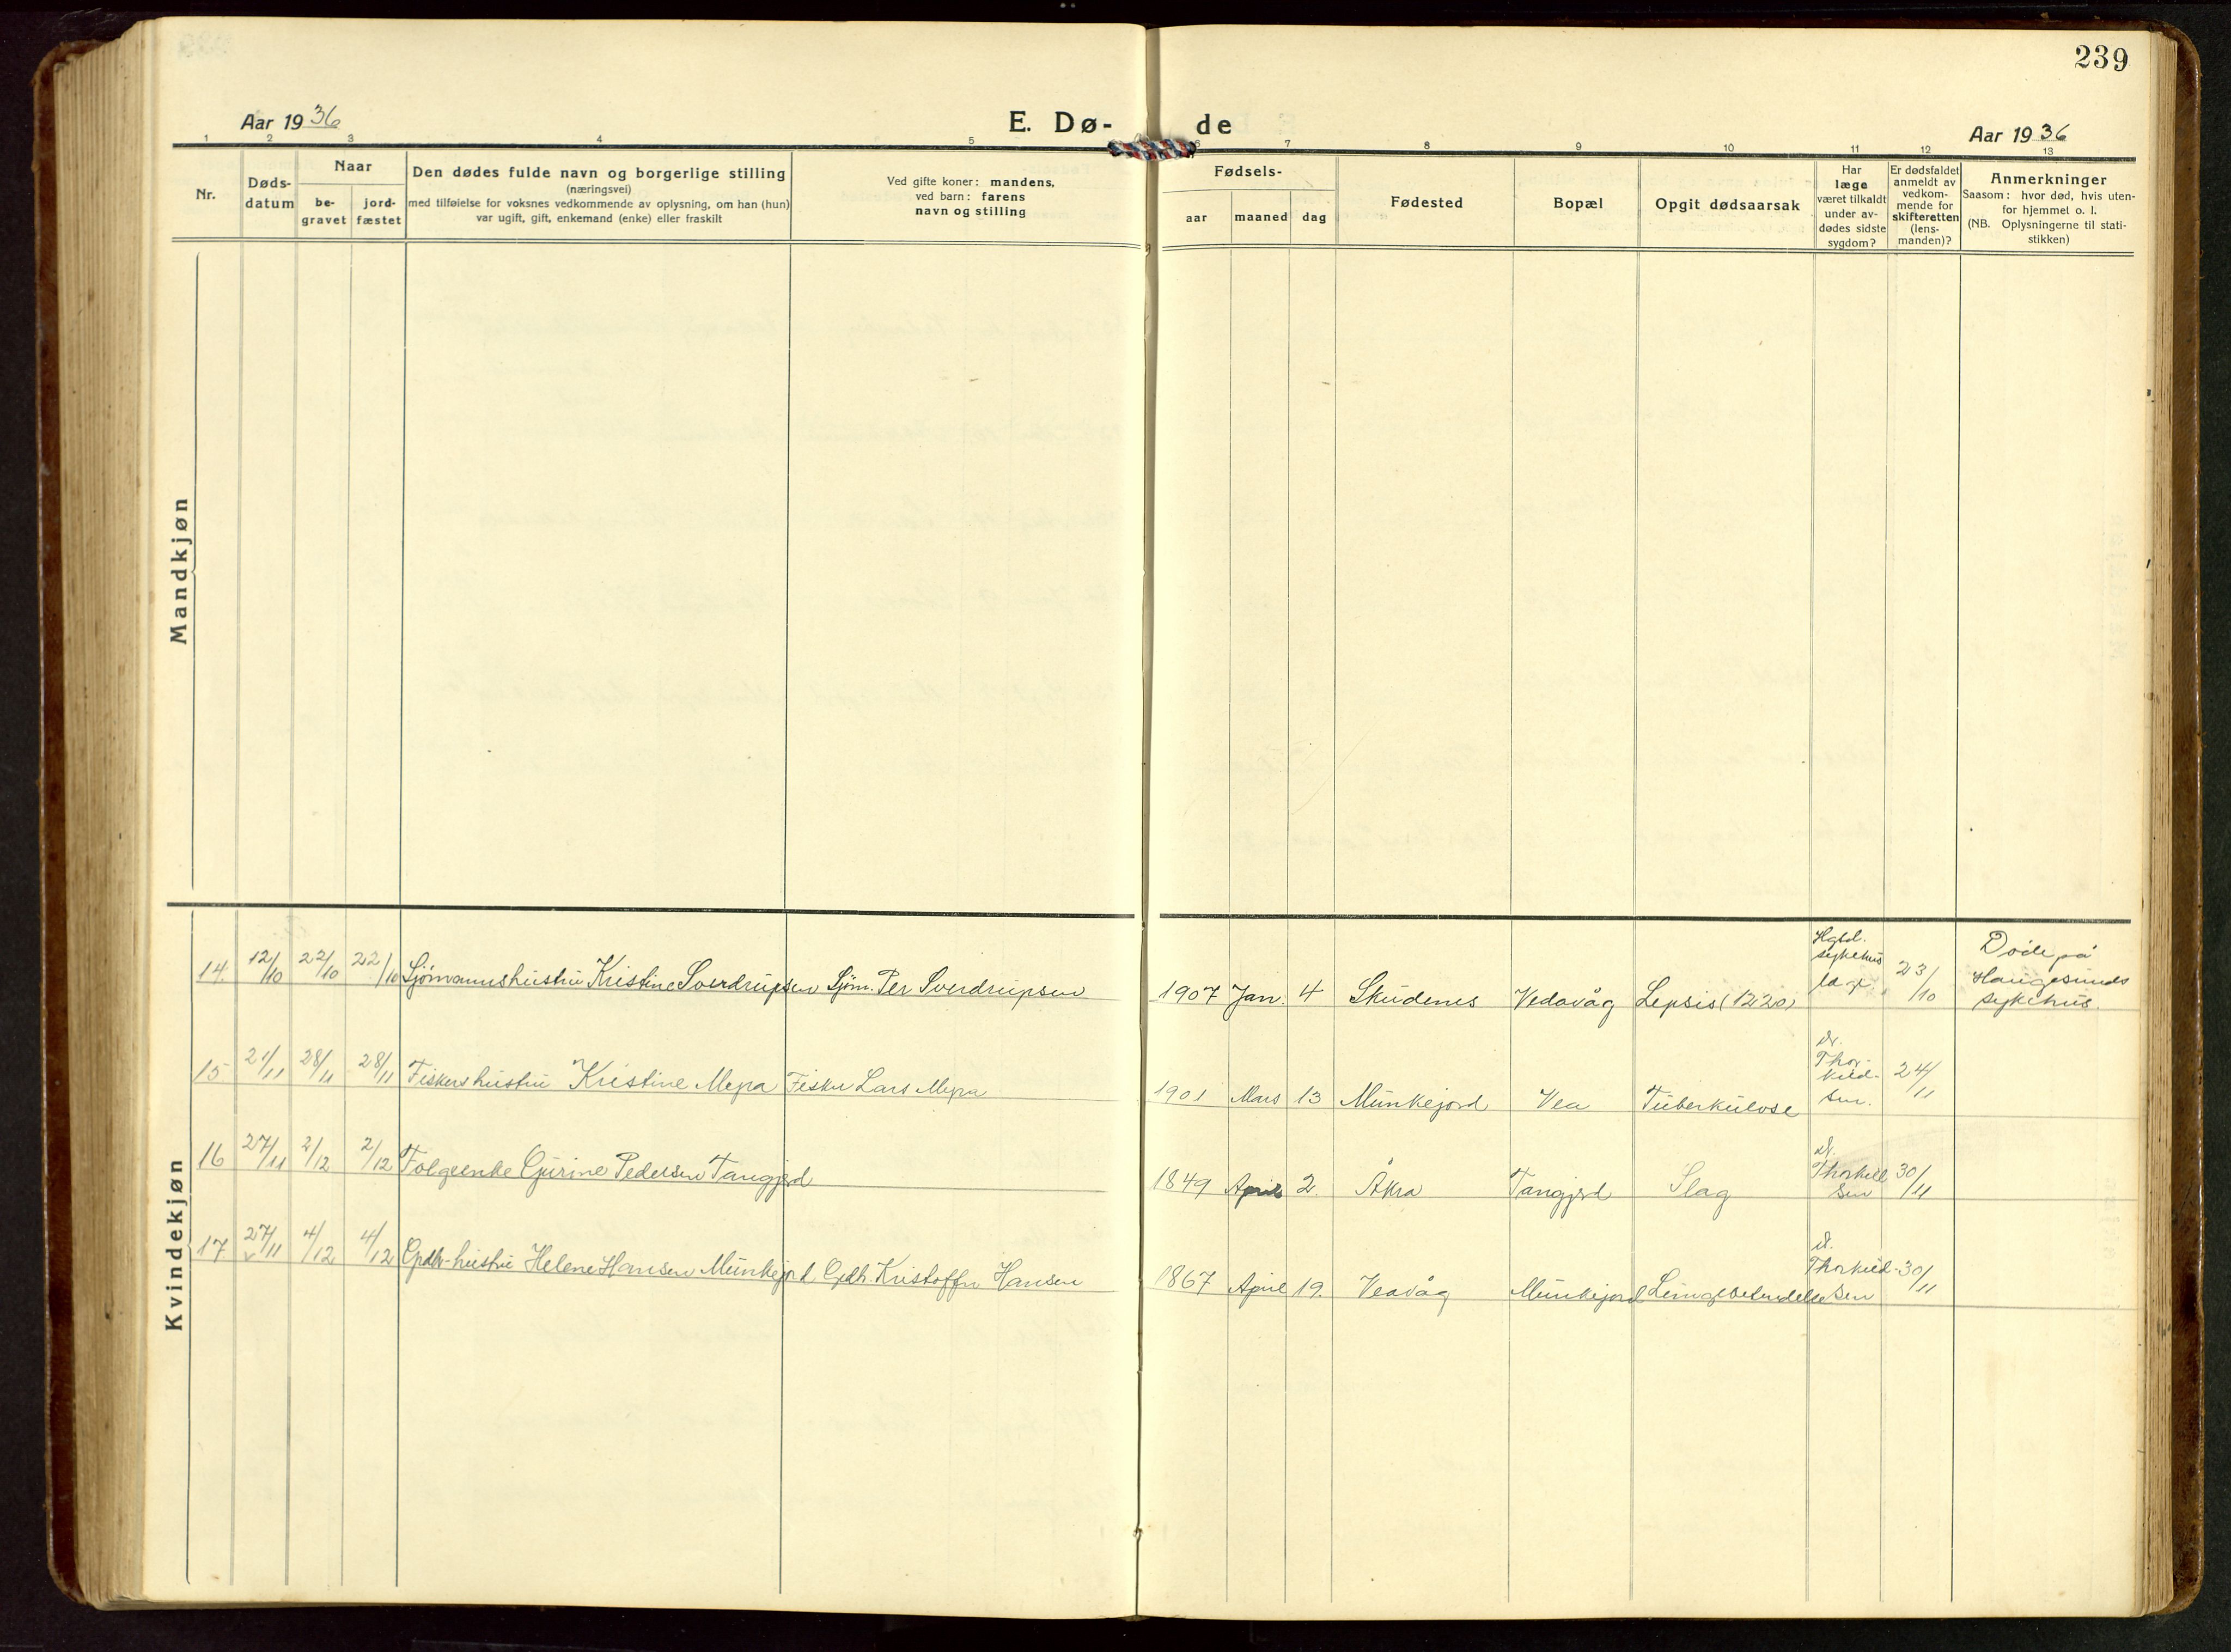 239
Aar 1936
E. Dø- de
Aar 1936
1 2 3 4 5 6 7 8 9 10 11 12 13
Nr.
Døds-
datum
Naar
be-
gravet
jord-
fæstet
Den dødes fulde navn og borgerlige stilling
(næringsvei)
med tilføielse for voksnes vedkommende av oplysning, om han (hun)
var ugift, gift, enkemand (enke) eller fraskilt
Ved gifte koner: mandens,
ved barn: farens
navn og stilling
Fødsels-
aar maaned dag
Fødested
Bopæl
Opgit dødsaarsak
Har
læge
været tilkaldt
under av-
dødes sidste
sygdom?
Er dødsfaldet
anmeldt av
vedkom-
mende for
skifteretten
(lens-
manden)?
Anmerkninger
Saasom: hvor død, hvis uten-
for hjemmet o. l.
(NB. Oplysningerne til stati-
stikken)
Mandkjøn
Kvindekjøn
14. 12/10 22/10 22/10 Sjømannshustru Kristine Sverdrupsen Sjøm. Per Sverdrupsen 1907 Jan. 4 Skudenes Vedavåg Lepsis (1220) Hgsd. sykehus 23/10 Døde på Haugesunds sykehus.
15 21/11 28/11 28/11 Fiskershustru Kristine Mepa Fisker Lars Mepa 1901 Mars 13 Munkejord Vea Tuberkulose Dr. Thorkild- sen. 24/11
16 27/11 2/12 2/12 Folgeenke Gurine Pedersen Tangjerd 1849 April 2. Åkra Tangjerd Slag dr. Thorkild sen 30/11
17 27/11 4/12 4/12 Gdbr.hustru Helene Hansen Munkejord Gdb. Kristoffer Hansen 1867 April 19. Veavåg Munkejord Lungebetendelse dr. Thorkild- sen 30/11